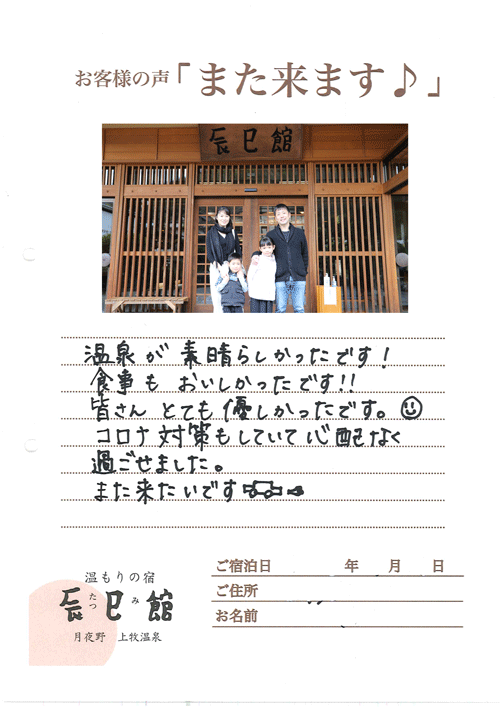 お客様の声「また来ます♪」
辰巳館
温泉が素晴らしかったです!
食事もおいしかったです!!
皆さんとても優しかったです。
コロナ対策もしていて心配なく
過ごせました。
また来たいです
ご宿泊日 年 月 日
ご住所
お名前
温もりの宿
辰巳館
たつ み
月夜野 上牧温泉